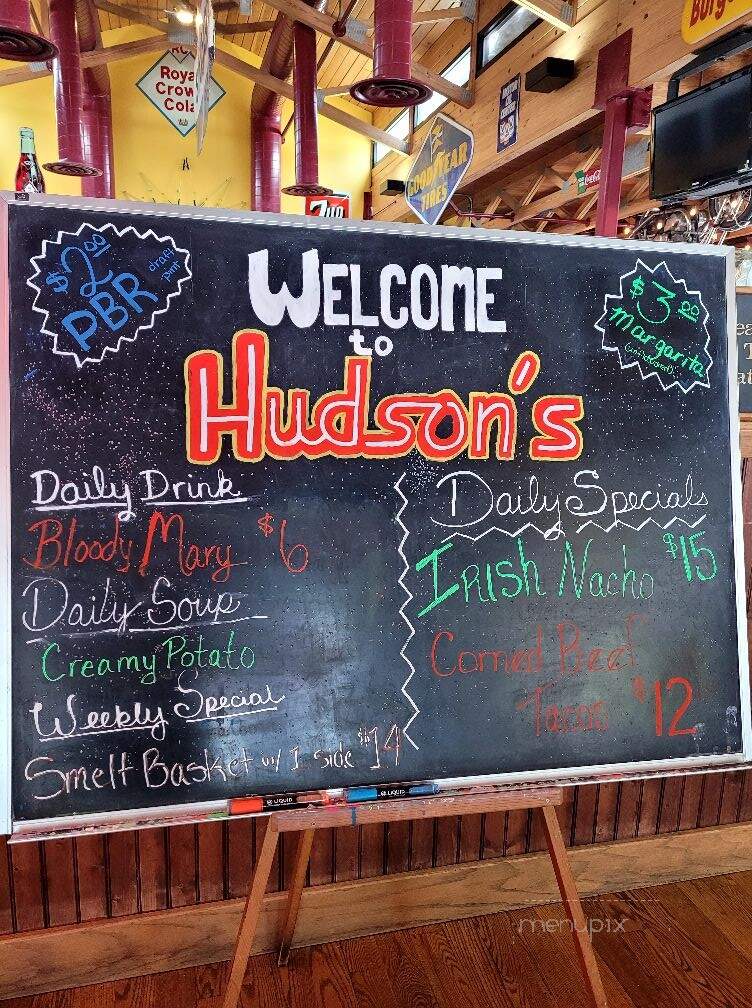 RC
Royal
Crown
Cola
GOODYEAR
TIRES
7up
Coca-Cola
Burge
$2.00
PBR
draft
pint
WELCOME
to
Hudson's
$3.00
margarita
Daily Drink
Bloody Mary $6
Daily Soup
Creamy Potato
Weekly Special
Smelt Basket w/ 1 side $14
Daily Specials
Irish Nacho $15
Corned Beef
Tacos $12
LIQUID
LIQUID
menupix